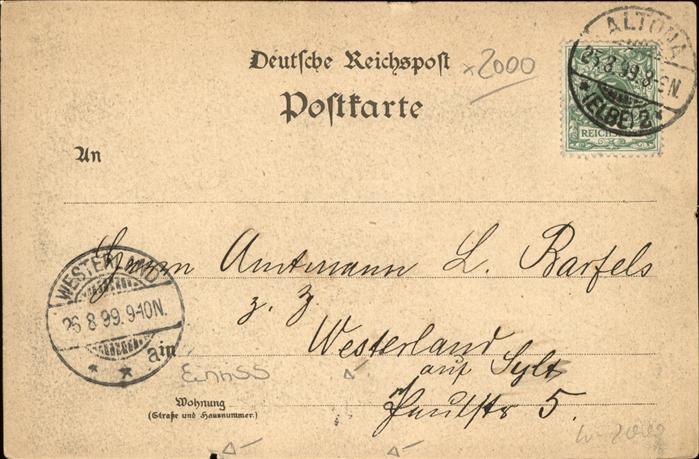 Deutsche Reichspost
×2000
Postkarte
ALTONA
25.8.99.8-9N.
* (ELBE) 2 *
REICHS
An
Herrn Amtmann L. Barfels
z. Z
Westerland
auf Sylt
Paulstr 5.
WESTERLAND
26.8.99.9-10N.
* *
in
Wohnung
(Straße und Hausnummer.)